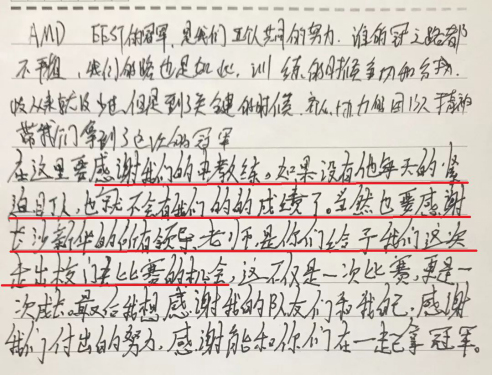 AMD BEST的冠军,是我们五人共同的努力.谁的冠之路都
不平坦,我们的路也是如此,训练的时候争切和台执.
以从来就没少过.但是到了关键的时候,齐心协力的团队精神
带我们拿到了这次的冠军
在这里要感谢我们的 教练。如果没有他每天的
迫自认,也就不会有我们的的成绩了。当然也要感谢
长沙新华的所有领导老师是你们给予我们这次
走出校门去比比赛的机会,这不仅是一次比赛,更是一
次成长.最后我想感谢我的队友们和我自己,感谢
我们付出的努力,感谢能和你们在一起拿冠军。